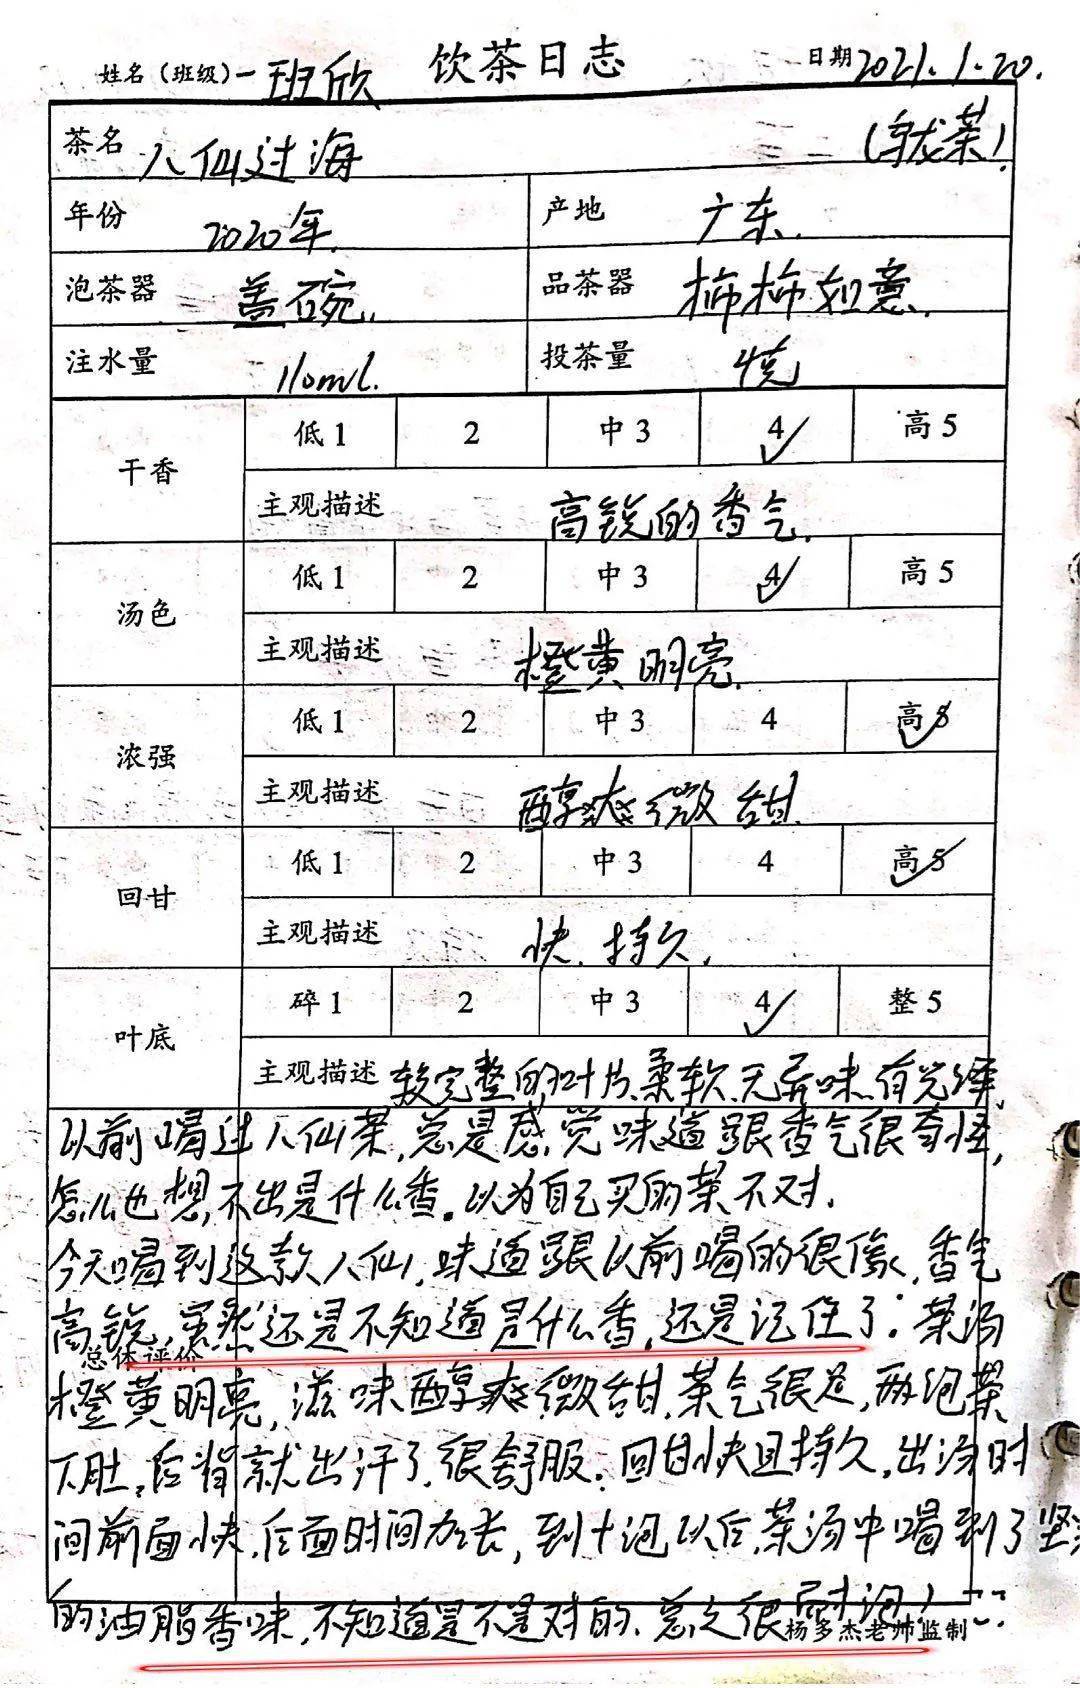 饮茶日志
姓名（班级）一班欣 日期 2021.1.20.
茶名 八仙过海 (乌龙茶)
年份 2020年. 产地 广东.
泡茶器 盖碗. 品茶器 柿柿如意.
注水量 110ml. 投茶量 4克
干香 低1 2 中3 4✓ 高5
主观描述 高锐的香气.
汤色 低1 2 中3 4✓ 高5
主观描述 橙黄明亮.
浓强 低1 2 中3 4 高5✓
主观描述 醇爽微甜.
回甘 低1 2 中3 4 高5✓
主观描述 快.持久.
叶底 碎1 2 中3 4✓ 整5
主观描述 较完整的叶片.柔软.无异味.有光泽.
以前喝过八仙茶,总是感觉味道跟香气很奇怪,
怎么也想不出是什么香。以为自己买的茶不对.
今天喝到这款八仙,味道跟以前喝的很像,香气
高锐,虽然还是不知道是什么香,还是记住了.茶汤
总体评价
橙黄明亮,滋味醇爽微甜.茶气很足,两泡茶
下肚,后背就出汗了.很舒服.回甘快且持久.出汤时
间前面快.后面时间加长,到十泡以后.茶汤中喝到了坚果
的油脂香味.不知道是不是对的.总之很耐泡!
杨多杰老师监制